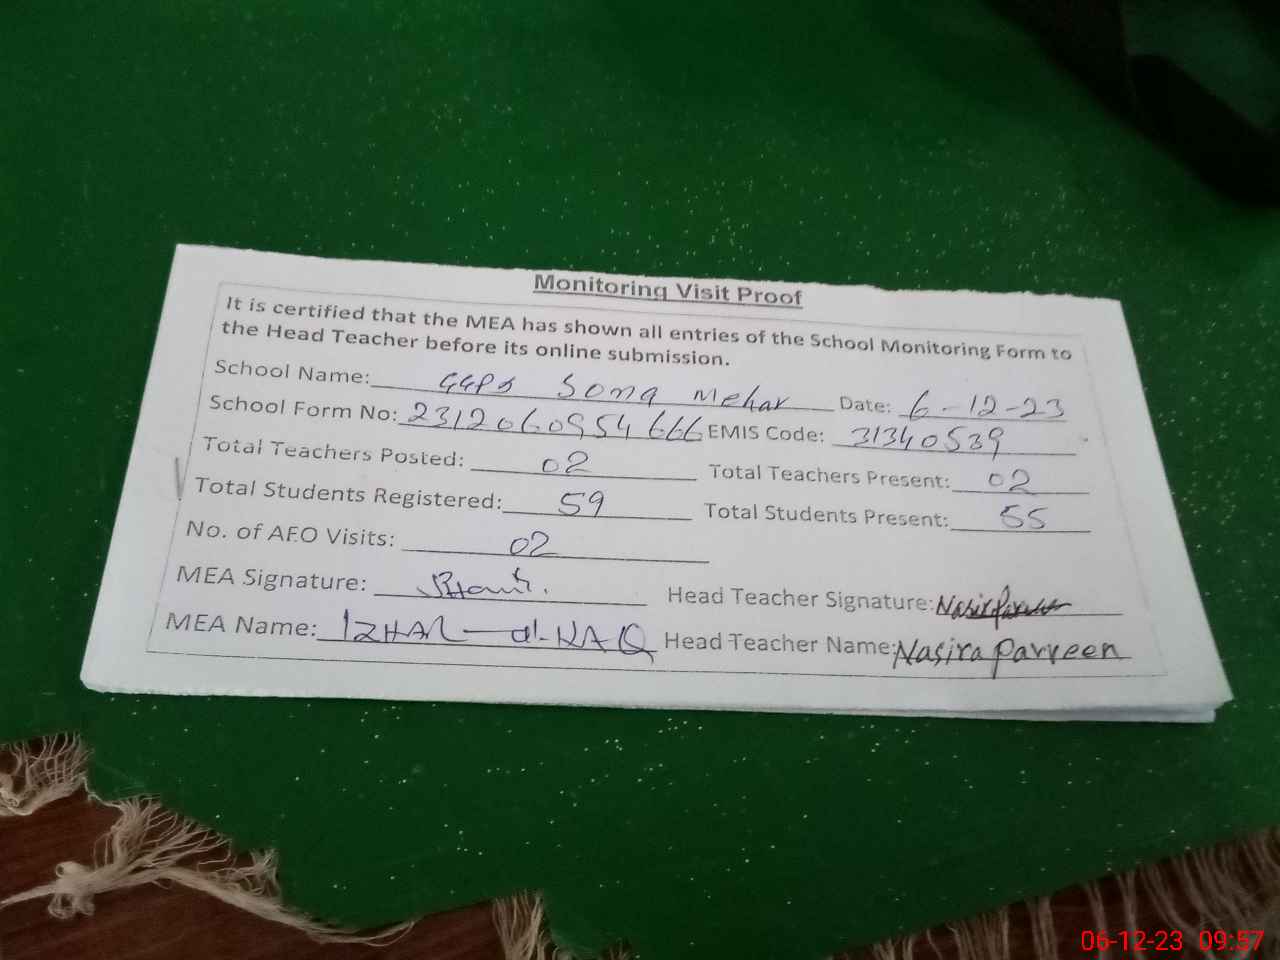 Monitoring Visit Proof
It is certified that the MEA has shown all entries of the School Monitoring Form to
the Head Teacher before its online submission.
School Name: GGPS Sona Mehar Date: 6-12-23
School Form No: 2312060954666 EMIS Code: 31340539
Total Teachers Posted: 02 Total Teachers Present: 02
Total Students Registered: 59 Total Students Present: 55
No. of AEO Visits: 02
MEA Signature: Head Teacher Signature: Nasira Parveen
MEA Name: IZHAR-ul-HAQ Head Teacher Name: Nasira Parveen
06-12-23 09:57